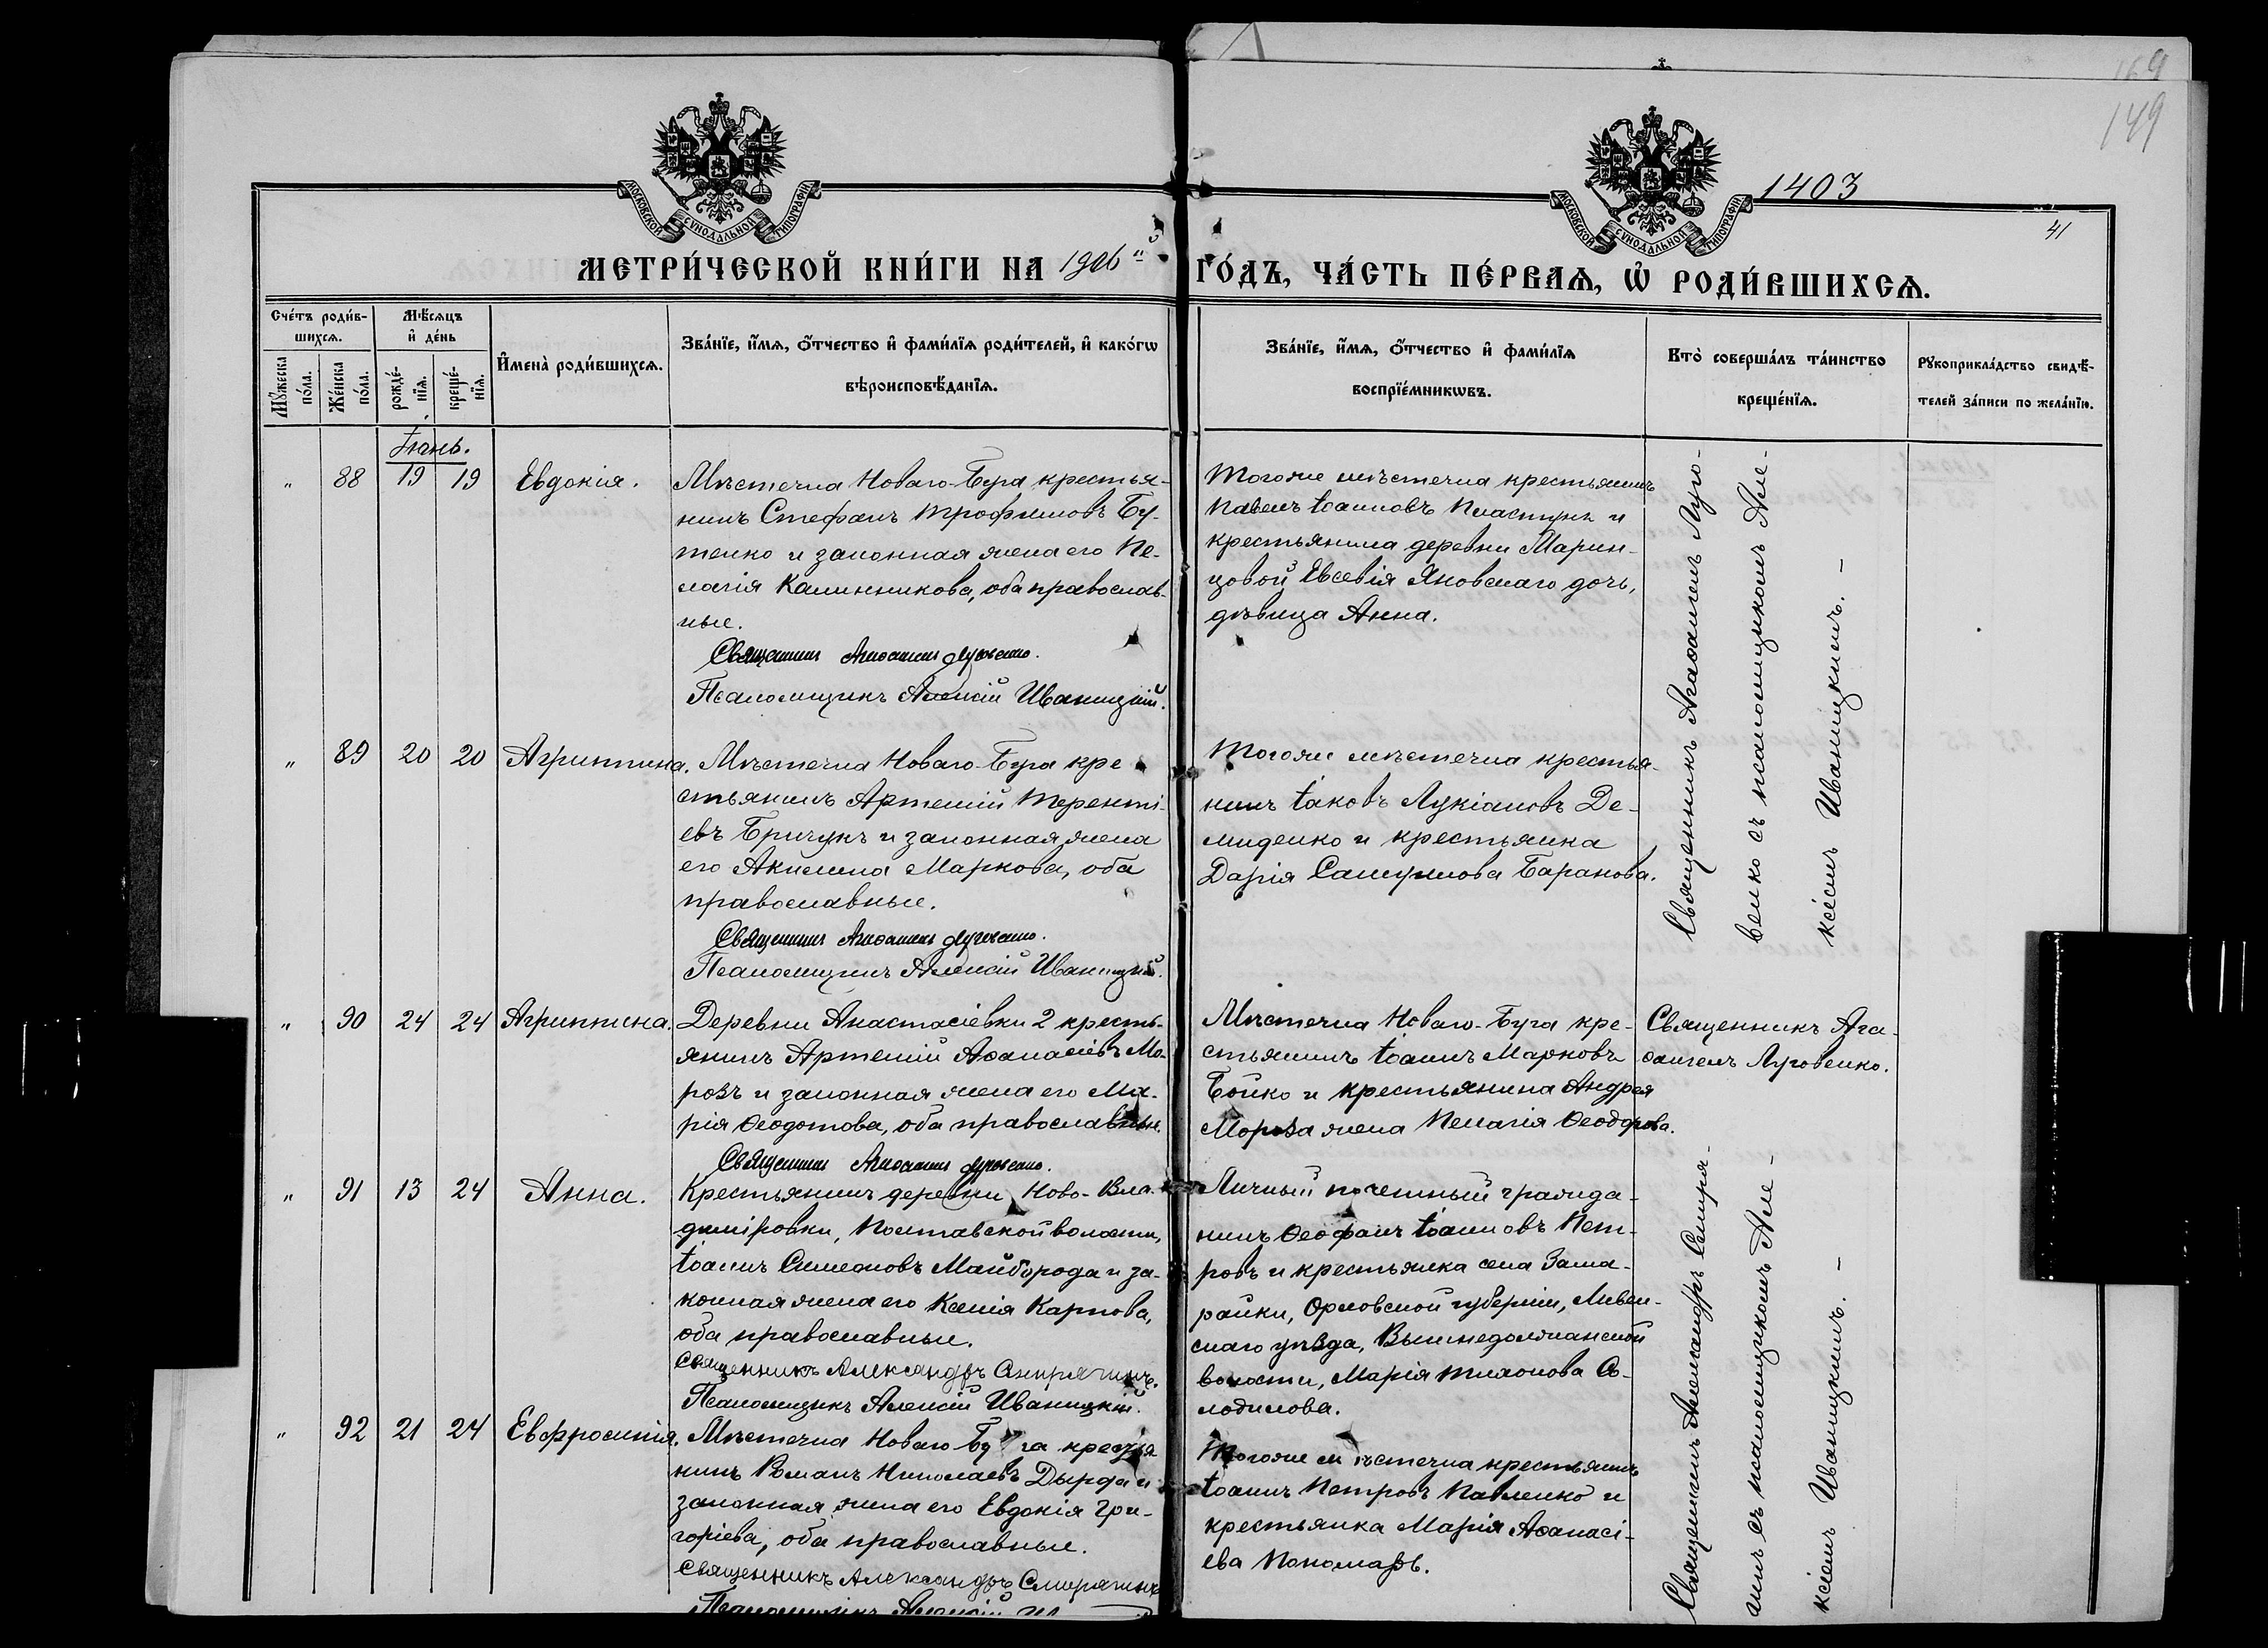 169
149
1403
41
МОСКОВСКОЙ СѴНОДАЛЬНОЙ ТИПОГРАФІИ
МОСКОВСКОЙ СѴНОДАЛЬНОЙ ТИПОГРАФІИ
МЕТРИ́ЧЕСКОЙ КНИ́ГИ НА 1906й ГО́ДЪ, ЧА́СТЬ ПЕ́РВАѦ, Ѽ РОДИ́ВШИХСѦ.
Сче́тъ роди́в-
шихсѧ.
Мꙋ́жеска
по́ла.
Же́нска
по́ла.
Мѣ́сѧцъ
и҆ де́нь
рожде́-
нїѧ.
креще́-
нїѧ.
И҆мена̀ роди́вшихсѧ.
Зва́нїе, и҆́мѧ, ѻ҆́тчество и҆ фами́лїѧ роди́телей, и҆ како́гѡ
вѣроисповѣ́данїѧ.
Зва́нїе, и҆́мѧ, ѻ҆́тчество и҆ фами́лїѧ
воспрїе́мникѡвъ.
Кто̀ соверша́лъ та́инство
креще́нїѧ.
Рꙋкоприкла́дство свидѣ́-
телей за́писи по жела́нїю.
Іюнь.
" 88 19 19 Евдокія.
Мѣстечка Новаго-Буга крестья-
нинъ Стефанъ Трофимовъ Бу-
тенко и законная жена его Пе-
лагія Калинникова, оба православ-
ные.
Священникъ Агаѳангелъ Луговенко.
Псаломщикъ Алексій Иваницкій.
Тогоже мѣстечка крестьянинъ
Павелъ Іоанновъ Пластунъ и
крестьянина деревни Марин-
цовой Евсевія Яновскаго дочь,
дѣвица Анна.
Священникъ Агаѳангелъ Луго-
венко съ псаломщикомъ Але-
ксіемъ Иваницкимъ. –
" 89 20 20 Агриппина.
Мѣстечка Новаго-Буга кре
стьянинъ Артемій Теренті-
евъ Бричукъ и законная жена
его Акилина Маркова, оба
православные.
Священникъ Агаѳангелъ Луговенко.
Псаломщикъ Алексій Иваницкій.
Тогоже мѣстечка крестья-
нинъ Іаковъ Лукіановъ Де-
миденко и крестьянка
Дарія Самуилова Баранова.
" 90 24 24 Агриппина.
Деревни Анастасіевки 2 кресть-
янинъ Артемій Аѳанасіевъ Мо-
розъ и законная жена его Ма-
рія Ѳеодотова, оба православные.
Священникъ Агаѳангелъ Луговенко.
Мѣстечка Новаго-Буга кре-
стьянинъ Іоаннъ Марковъ
Бойко и крестьянина Андрея
Мороза жена Пелагія Ѳеодорова.
Священникъ Ага-
ѳангелъ Луговенко.
" 91 13 24 Анна.
Крестьянинъ деревни Ново-Вла-
диміровки, Полтавской волости,
Іоаннъ Симеоновъ Майборода и за-
конная жена его Ксенія Карпова,
оба православные.
Священникъ Александръ Смирягинъ.
Псаломщикъ Алексій Иваницкій.
Личный почетный гражда-
нинъ Ѳеофанъ Іоанновъ Пет-
ровъ и крестьянка села Зама-
райки, Орловской губерніи, Ливен-
скаго уѣзда, Вышнедолжанской
волости, Марія Тихонова Со-
лодилова.
Священникъ Александръ Смиря-
гинъ съ псаломщикомъ Але-
ксіемъ Иваницкимъ. –
" 92 21 24 Евфросинія.
Мѣстечка Новаго Буга крестья
нинъ Романъ Николаевъ Дырда и
законная жена его Евдокія Гри-
горіева, оба православные.
Священникъ Александръ Смирягинъ
Псаломщикъ Алексій
Тогоже мѣстечка крестьянинъ
Іоаннъ Петровъ Павленко и
крестьянка Марія Аѳанасі-
ева Пономарь.